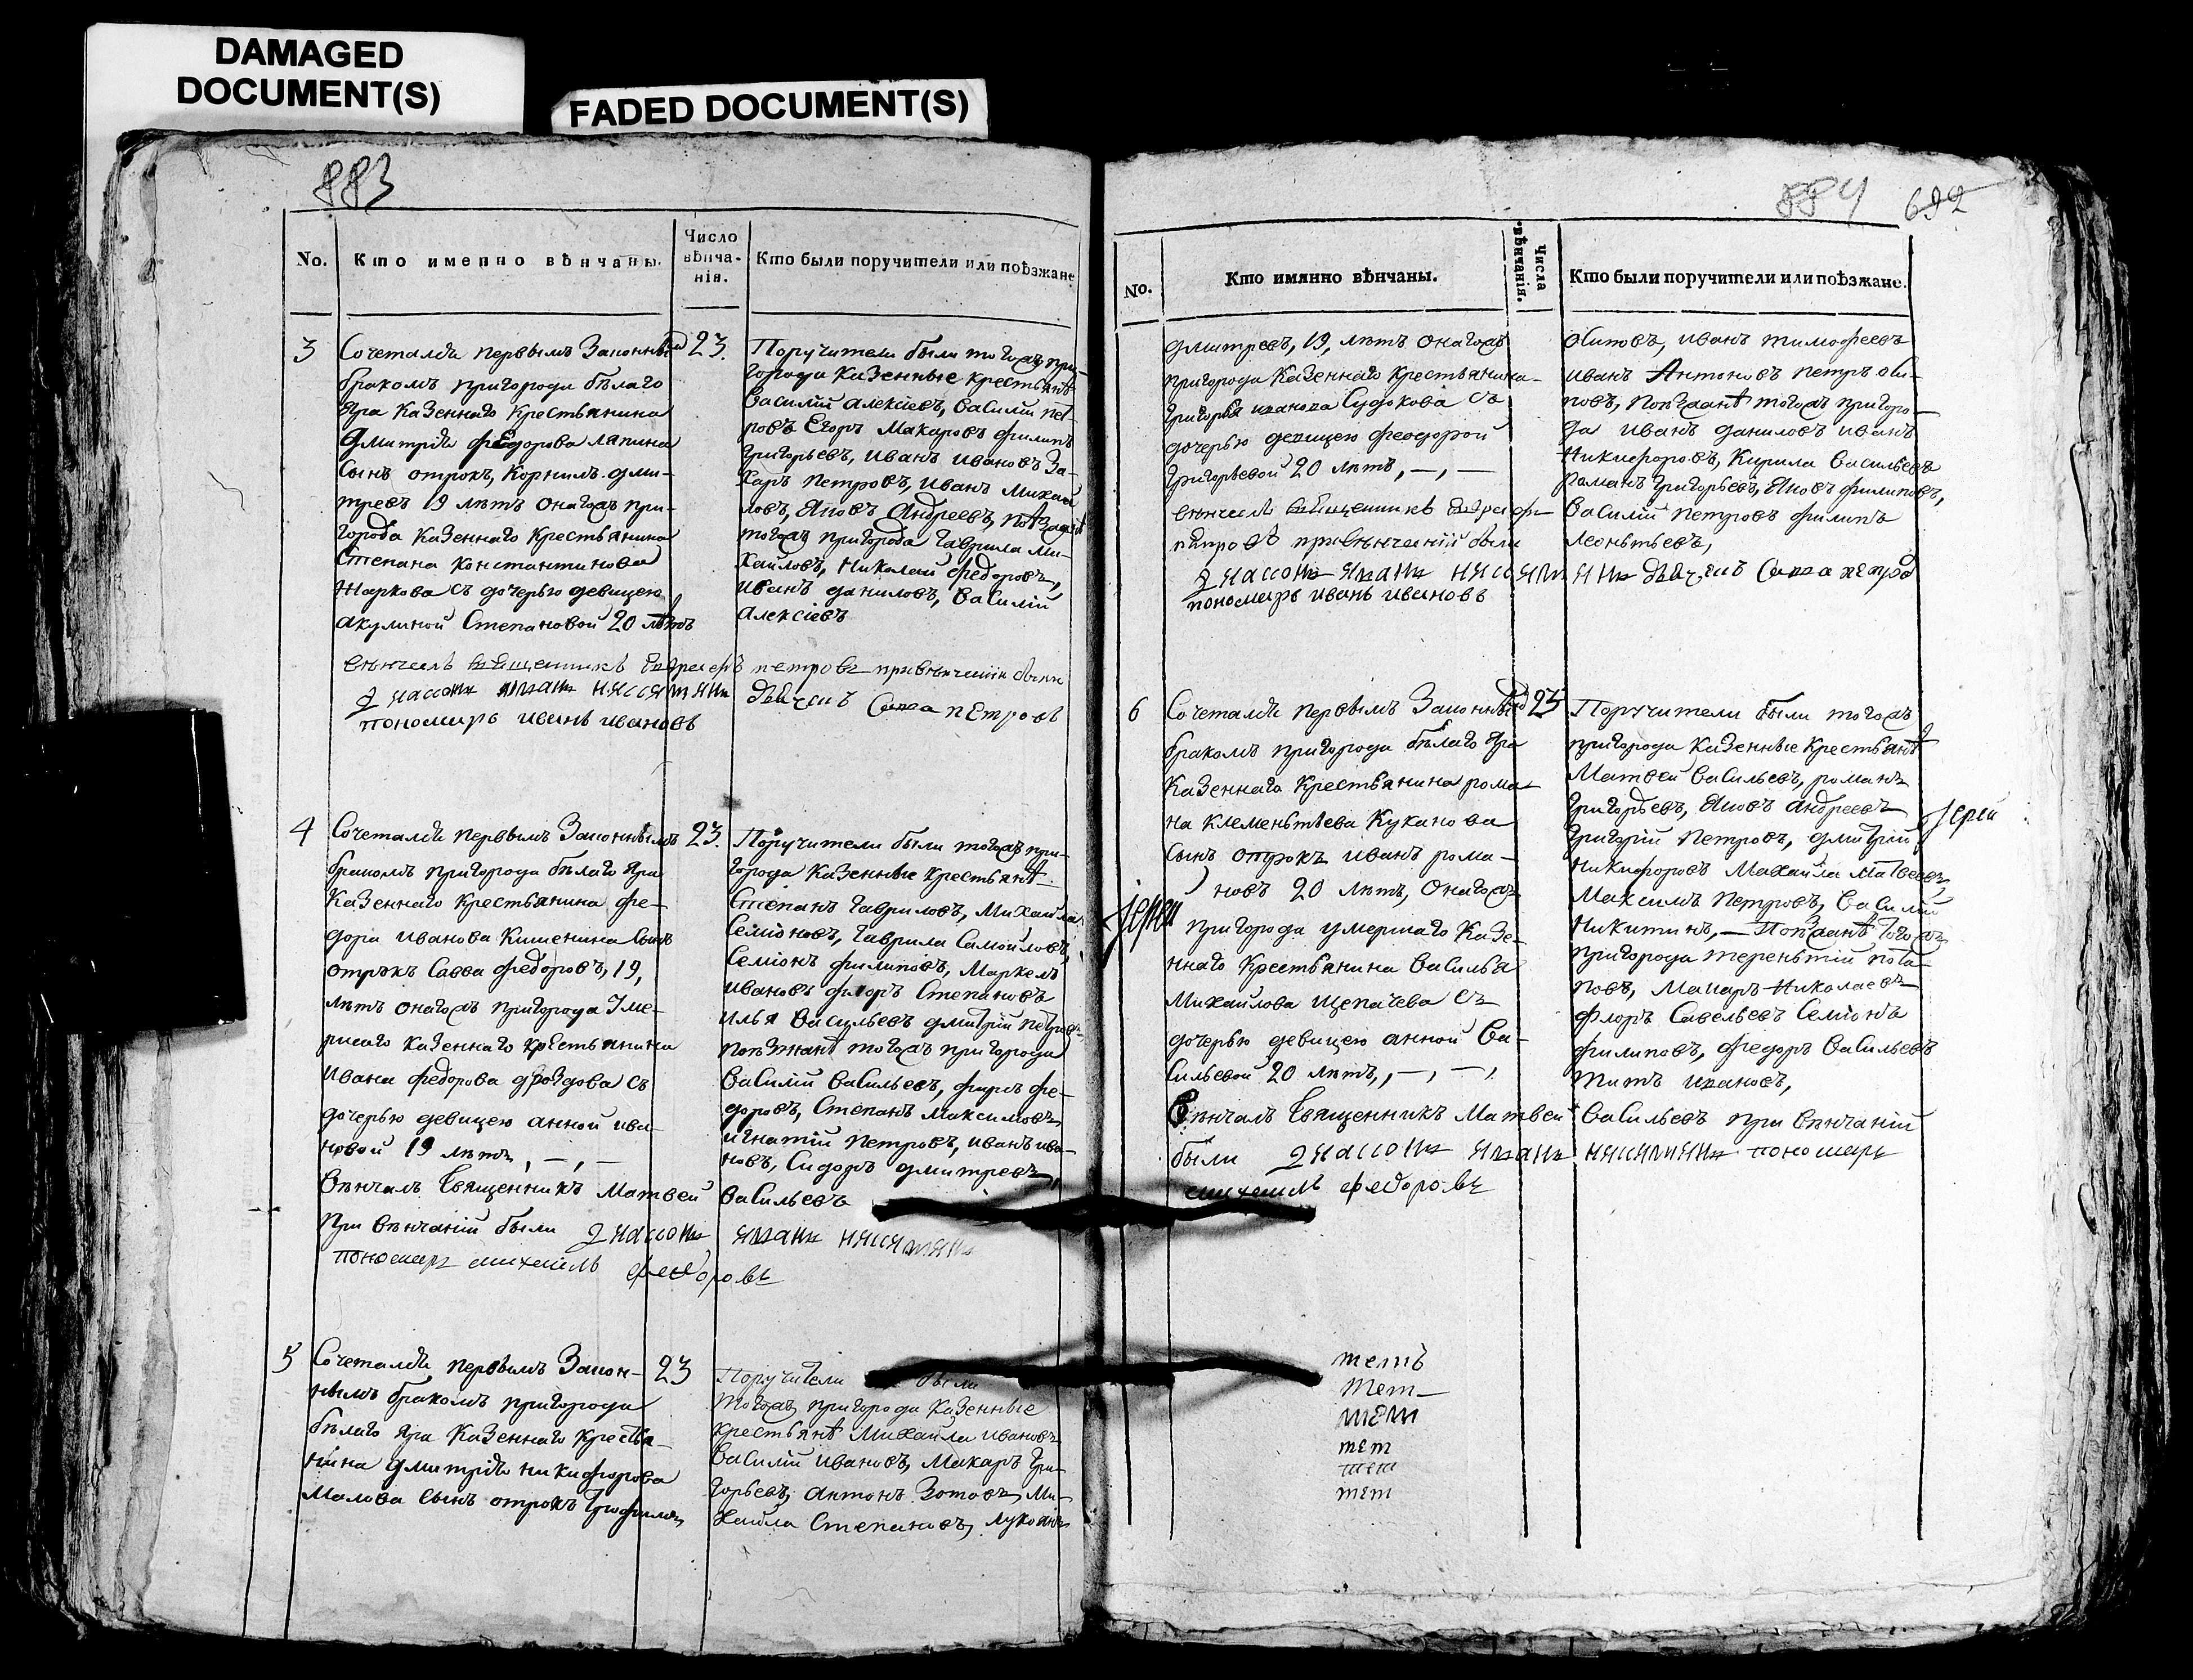 DAMAGED
DOCUMENT(S)
FADED DOCUMENT(S)
883
No.
Кто именно вѣнчаны.
Число
вѣнча-
нія.
Кто были поручители или поѣзжане
3
Сочетался первымъ Законнымъ
бракомъ пригорода бѣлаго
Яра Казеннаго Крестьянина
дмитрія федорова лапина
Сынъ отрокъ, Корнилъ дми-
тревъ 19 лѣтъ онагожъ при-
города Казеннаго Крестьянина
Степана Константинова
Жаркова съ дочерью девицею
акулиной Степановой 20 лѣтъ
23.
Поручители были тогожъ при-
города Казенные крестьянѣ
Василий алексіевъ, Василий пет-
ровъ Егоръ Макаровъ филипъ
Григорьевъ, иванъ ивановъ За-
харъ петровъ, иванъ михаи
ловъ, Яковъ Андреевъ, поѣзжанѣ
тогожъ пригорода гаврила ми-
хаиловъ, Николаи федоровъ,
иванъ даниловъ, Василий
алексіевъ
венчалъ священникъ петровъ при венчании были
диаконъ Савва петровъ
пономарь иванъ ивановъ
4
Сочетался первымъ Законнымъ
бракомъ пригорода бѣлаго Яра
Казеннаго Крестьянина фе-
дора иванова Кишенина Сынъ
отрокъ Савва федоровъ, 19,
лѣтъ онагожъ пригорода Уме-
ршаго Казеннаго крестьянина
ивана федорова дроздова съ
дочерью девицею анной ива-
новой 19 лѣтъ, —, —
23.
Поручители были тогожъ при-
города Казенные крестьянѣ
Степанъ гавриловъ, Михаила
Семіоновъ, гаврила Самойловъ,
Семіонъ филиповъ, Маркелъ
ивановъ флоръ Степановъ
илья Васильевъ дмитрій петровъ
поѣзжанѣ тогожъ пригорода
Василий Васильевъ, фе-
доровъ, Степанъ максимовъ
игнатій петровъ, иванъ ива-
новъ, Сидоръ дмитревъ,
Вѣнчалъ Священникъ Матвей Васильевъ
При вѣнчаній были
пономарь михаилъ федоровъ
5
Сочетался первымъ Закон-
нымъ бракомъ пригорода
бѣлаго Яра Казеннаго Кресть-
янина дмитрія никифорова
Малова Сынъ отрокъ трофимъ
23
Поручители были
тогожъ пригорода Казенные
крестьянѣ Михаила ивановъ
Василий ивановъ, Макаръ Гри-
горьевъ, антонъ Зотовъ, Ми-
хаила Степановъ, лукоянъ
884 692
No.
Кто имянно вѣнчаны.
Числа
вѣнчанія.
Кто были поручители или поѣзжане.
дмитревъ, 19, лѣтъ онагожъ
пригорода Казеннаго Крестьянина
григорья иванова Судокова Съ
дочерью девицею феодорой
григорьевой 20 лѣтъ, —, —
венчалъ священникъ
петровъ при венчаній были
пономарь иванъ ивановъ
иванъ тимофеевъ
иванъ Антоновъ петръ оси-
повъ, поѣзжанѣ тогожъ пригоро-
да иванъ даниловъ иванъ
Никифоровъ, Кирила Васильевъ
романъ григорьевъ, Яковъ филиповъ,
Василий петровъ филипъ
леоньтьевъ,
диаконъ Савва петровъ
6
Сочетался первымъ Законнымъ
бракомъ пригорода бѣлаго Яра
Казеннаго Крестьянина рома-
на клеменьтьева Куканова
Сынъ отрокъ иванъ рома-
новъ 20 лѣтъ, онагожъ
пригорода умершаго Казе-
ннаго Крестьянина Василья
Михаилова щепачева Съ
дочерью девицею анной Ва-
Сильевой 20 лѣтъ, —, —,
23
Поручители были тогожъ
пригорода Казенные Крестьянѣ
Матвей Васильевъ, романъ
Григорьевъ, Яковъ андреевъ
Григорій Петровъ, дмитрій
Никифоровъ Михаила Матвеевъ,
Максимъ петровъ, Василий
Никитинъ, — Поѣзжанѣ тогожъ
пригорода тереньтій пота-
повъ, Макаръ Николаевъ
флоръ Савельевъ Семіонъ
филиповъ, федоръ Васильевъ
титъ ивановъ,
Іерей
Іерей
Вѣнчалъ Священникъ Матвей Васильевъ при Вѣнчаній
были пономарь
михаилъ федоровъ